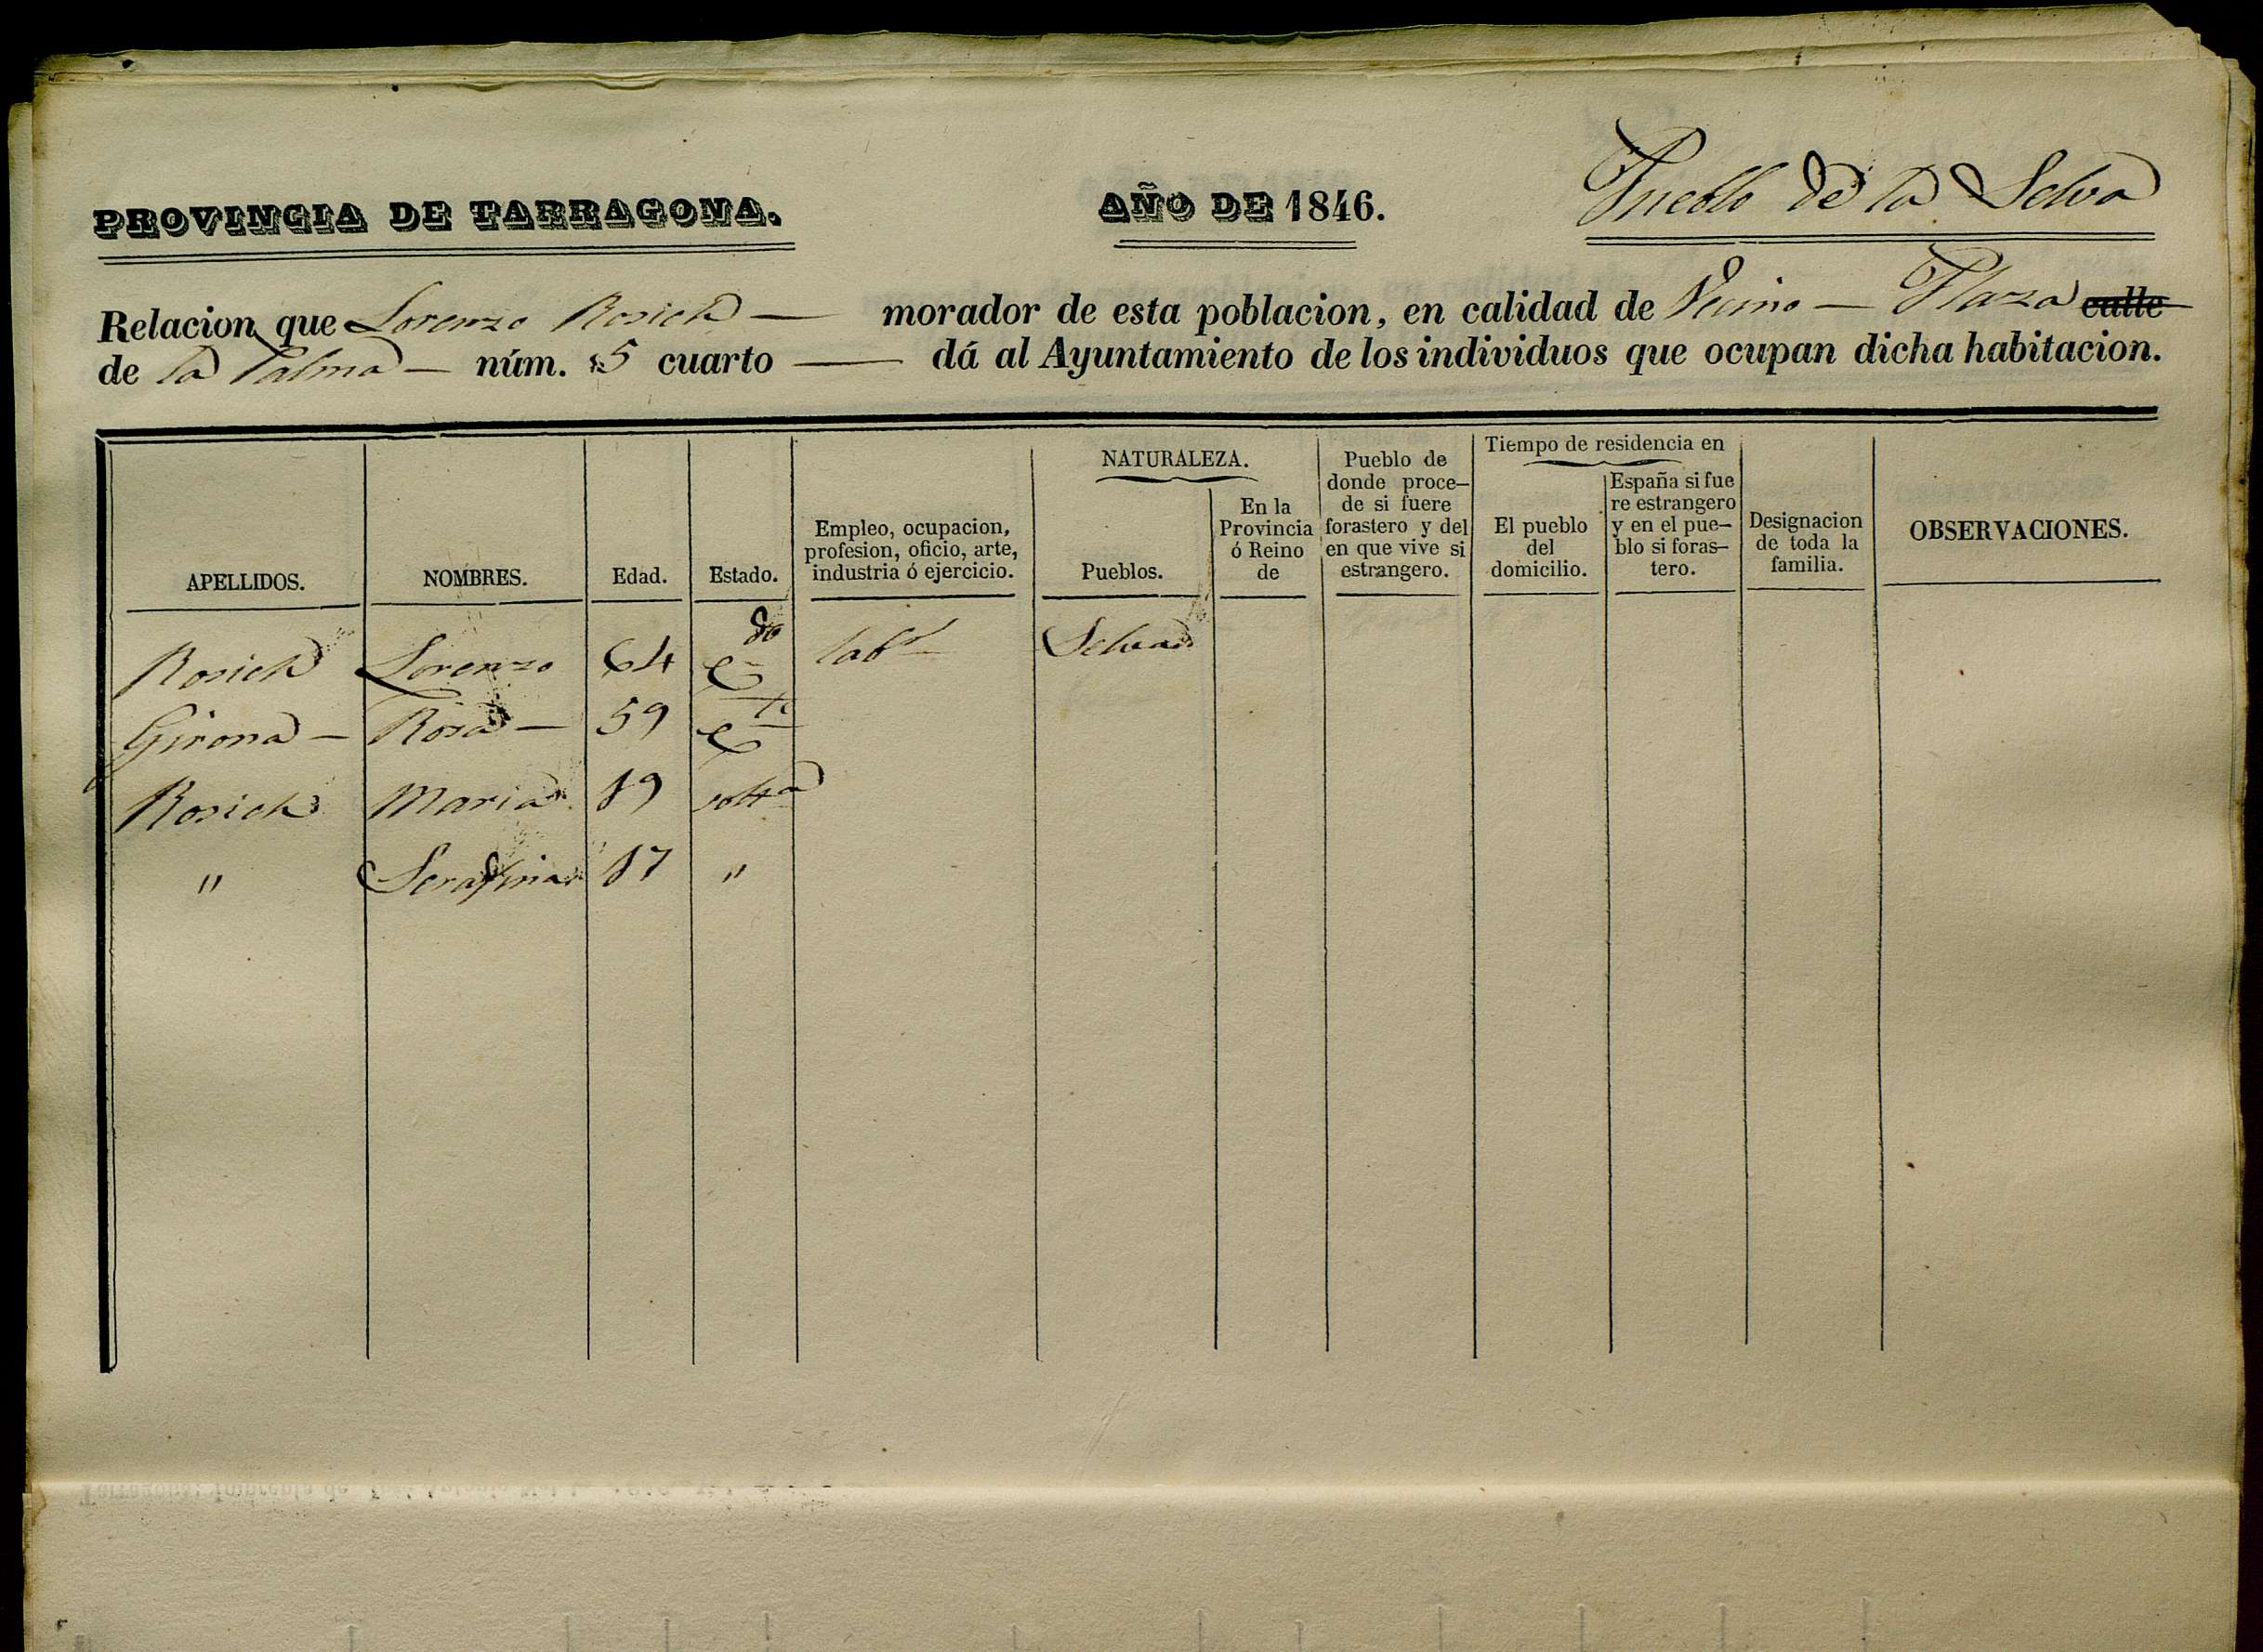 PROVINCIA DE TARRAGONA. AÑO DE 1846. Pueblo de la Selva
Relacion que Lorenzo Rosich — morador de esta poblacion, en calidad de Vecino — Plaza calle
de la Palma — núm. 5 cuarto — dá al Ayuntamiento de los individuos que ocupan dicha habitacion.
APELLIDOS.
NOMBRES.
Edad.
Estado.
Empleo, ocupacion,
profesion, oficio, arte,
industria ó ejercicio.
NATURALEZA.
Pueblos.
En la
Provincia
ó Reino
de
Pueblo de
donde proce-
de si fuere
forastero y del
en que vive si
estrangero.
Tiempo de residencia en
El pueblo
del
domicilio.
España si fue
re estrangero
y en el pue-
blo si foras-
tero.
Designacion
de toda la
familia.
OBSERVACIONES.
Rosich Lorenzo 64 C.do labr Selva
Girona — Rosa — 59 C.
Rosich Maria 19 solta
" Serafina 17 "